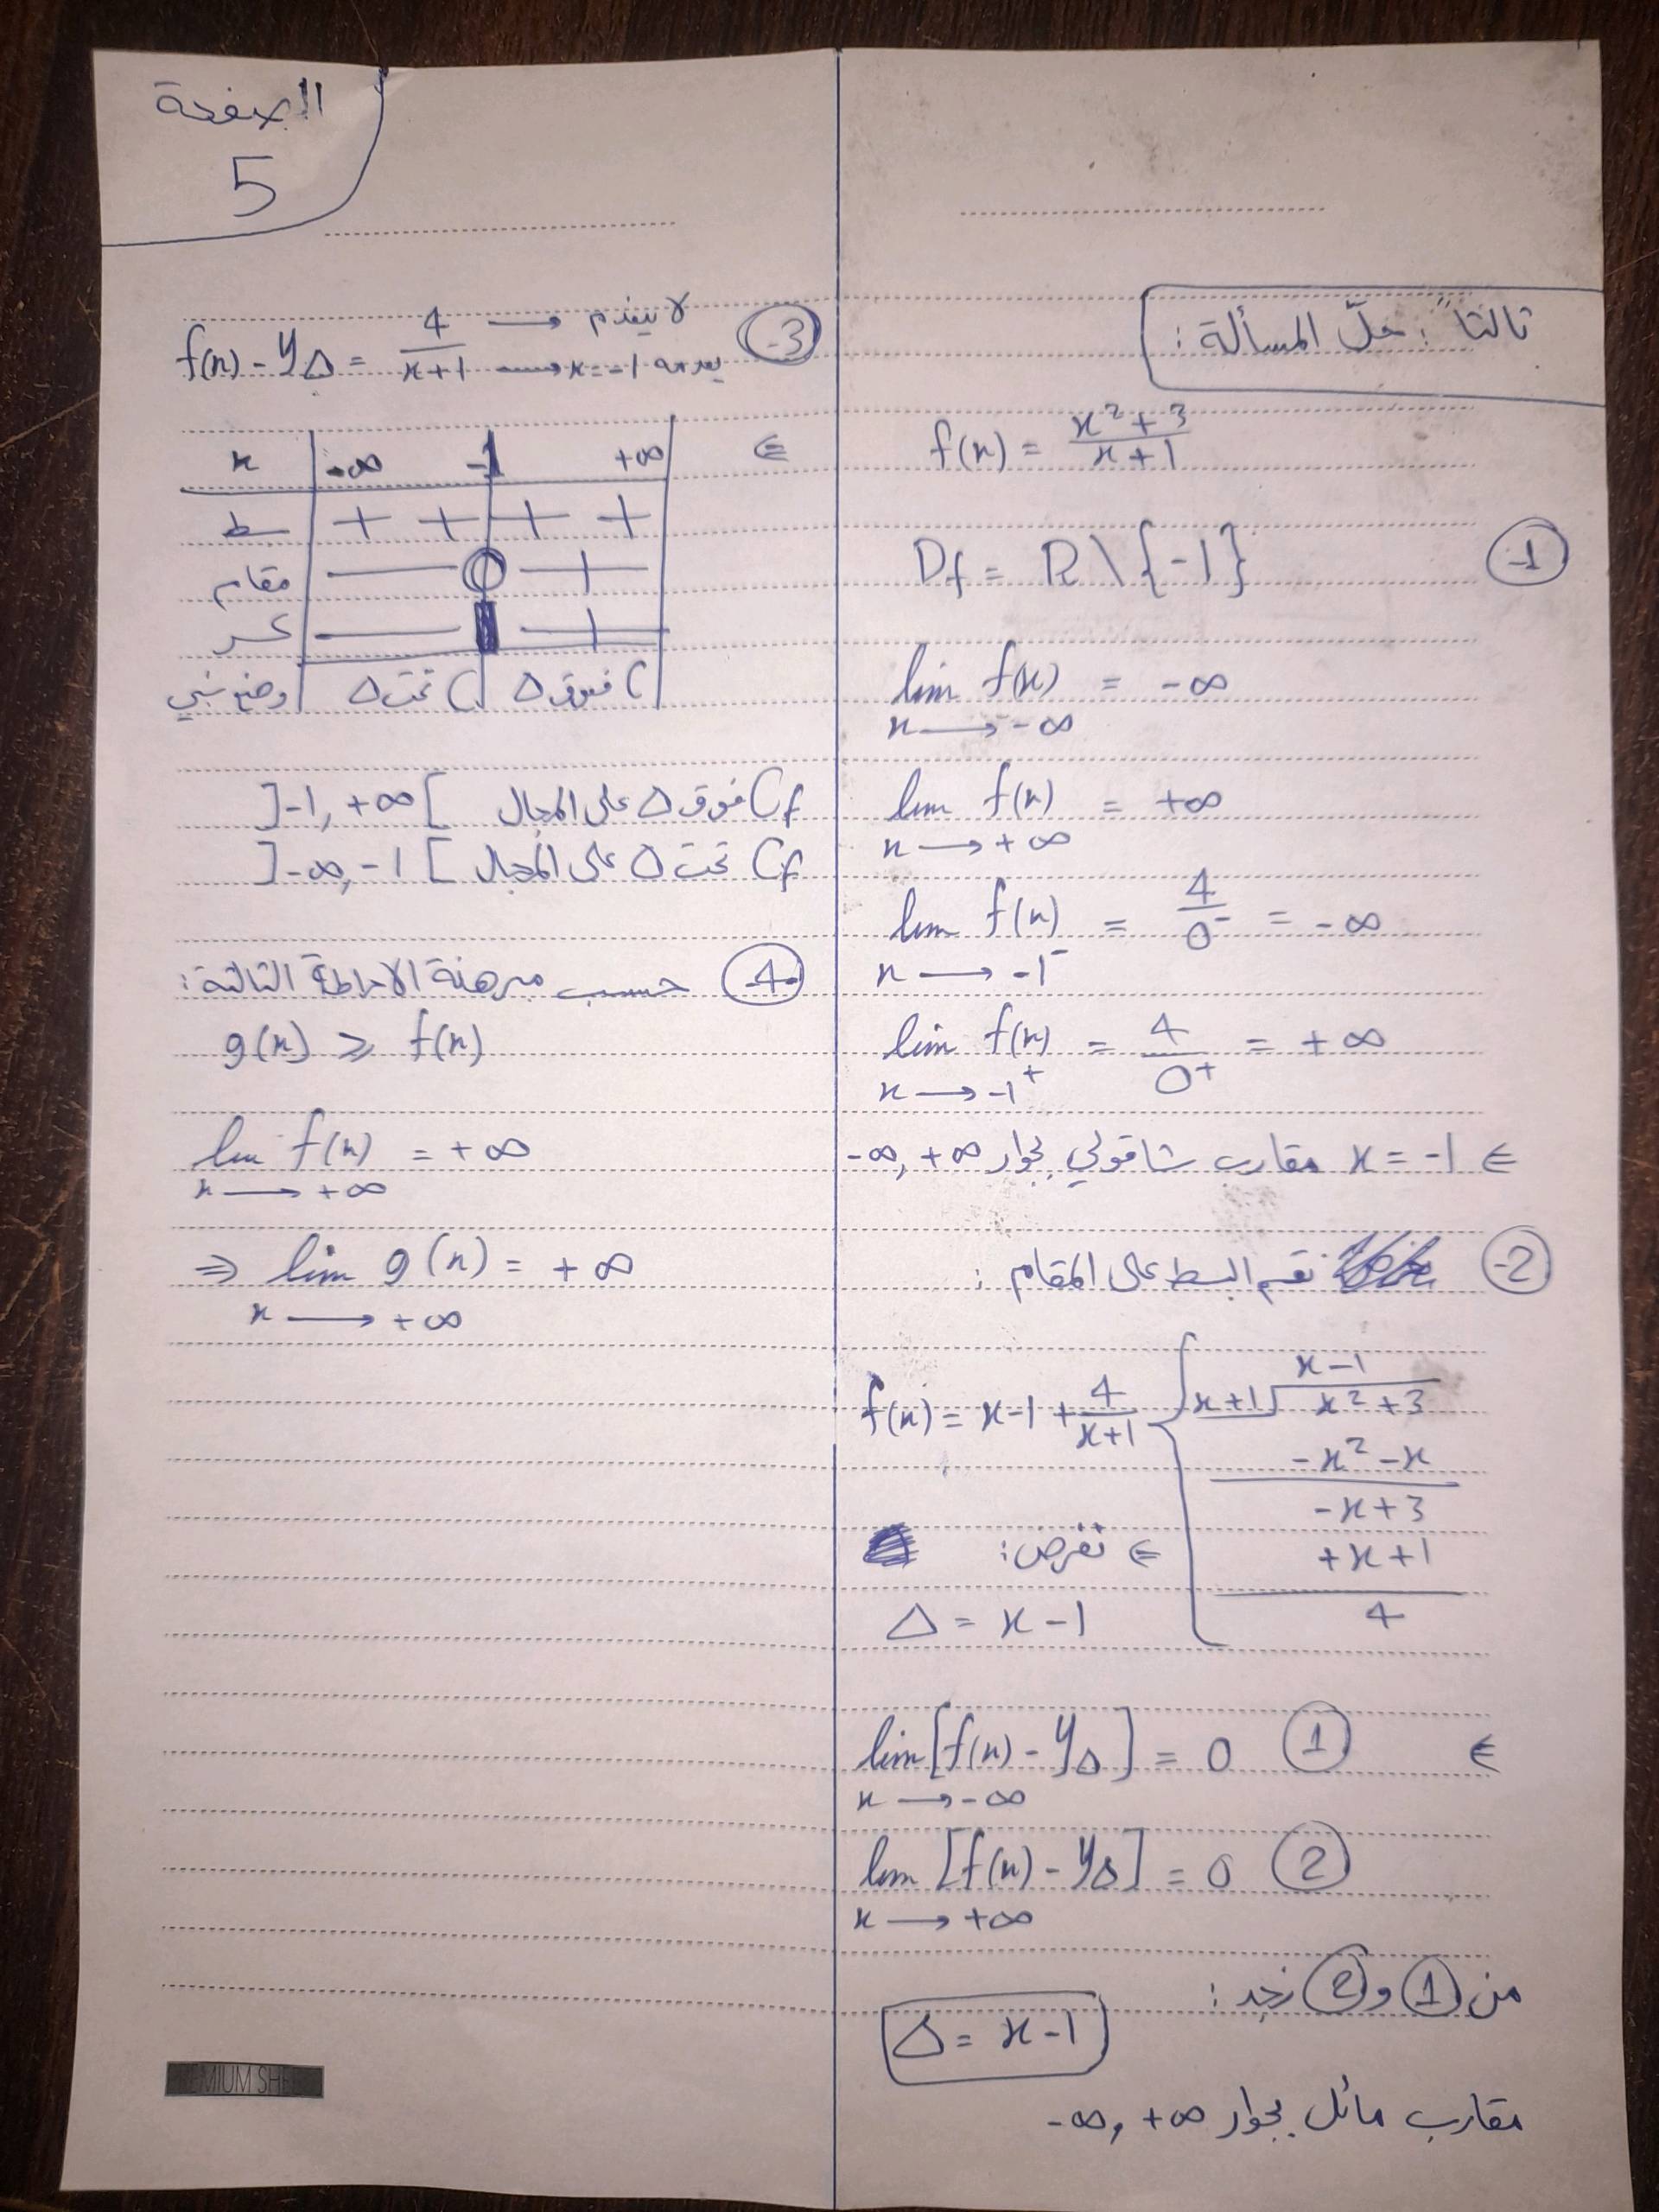 الصفحة
5
ثالثاً: حلّ المسألة:
f(x) = \frac{x^2+3}{x+1}
-1
Df = R \ {-1}
lim f(x) = -∞
x → -∞
lim f(x) = +∞
x → +∞
lim f(x) = \frac{4}{0^-} = -∞
x → -1^-
lim f(x) = \frac{4}{0^+} = +∞
x → -1^+
⇐ x = -1 مقارب شاقولي بجوار +∞ ,-∞
-2 نقسم البسط على المقام :
x-1
x+1 | x^2+3
-x^2-x
-x+3
+x+1
4
f(x) = x-1 + \frac{4}{x+1}
⇐ نفرض:
Δ = x-1
⇐ lim [f(x) - yΔ] = 0 ①
x → -∞
lim [f(x) - yΔ] = 0 ②
x → +∞
من ① و ② نجد :
Δ = x-1
مقارب مائل بجوار +∞ ,-∞
-3 f(x) - yΔ = \frac{4}{x+1}
4 → لا ينعدم
x+1 → x=-1 ينعدم عند
⇐
x | -∞ -1 +∞
بسط | + + + +
مقام | — 0 +
كسر | — || +
وضع نسبي | C تحت Δ | C فوق Δ
Cf فوق Δ على المجال ]-1, +∞[
Cf تحت Δ على المجال ]-∞, -1[
-4 حسب مبرهنة الاحاطة الثالثة :
g(x) ≥ f(x)
lim f(x) = +∞
x → +∞
⇒ lim g(x) = +∞
x → +∞